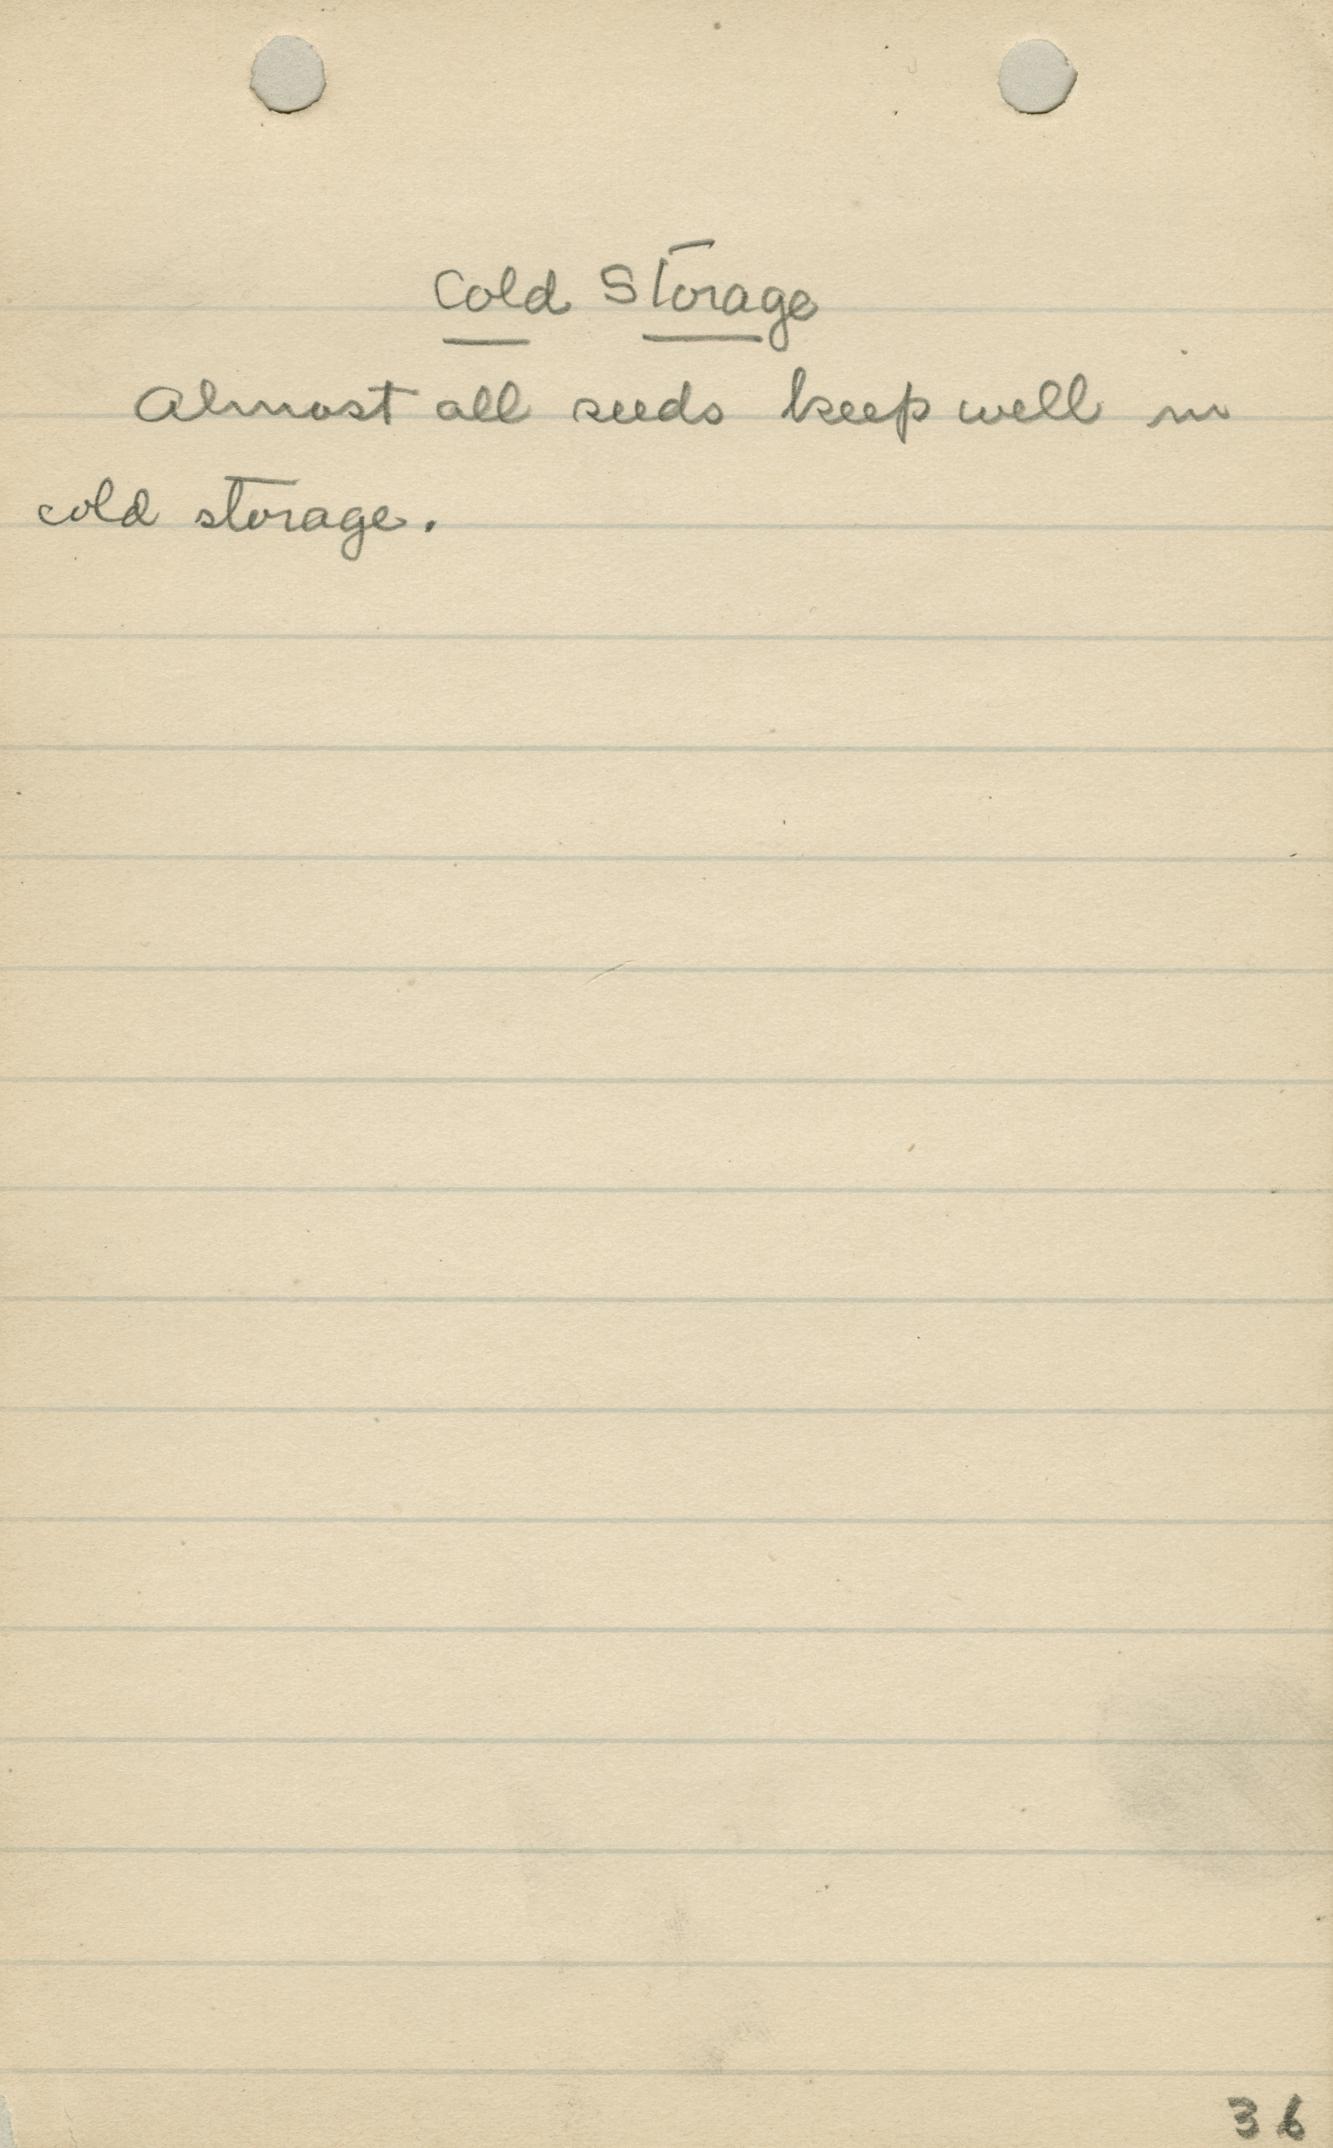 Cold Storage
Almost all seeds keep well in
cold storage.
36